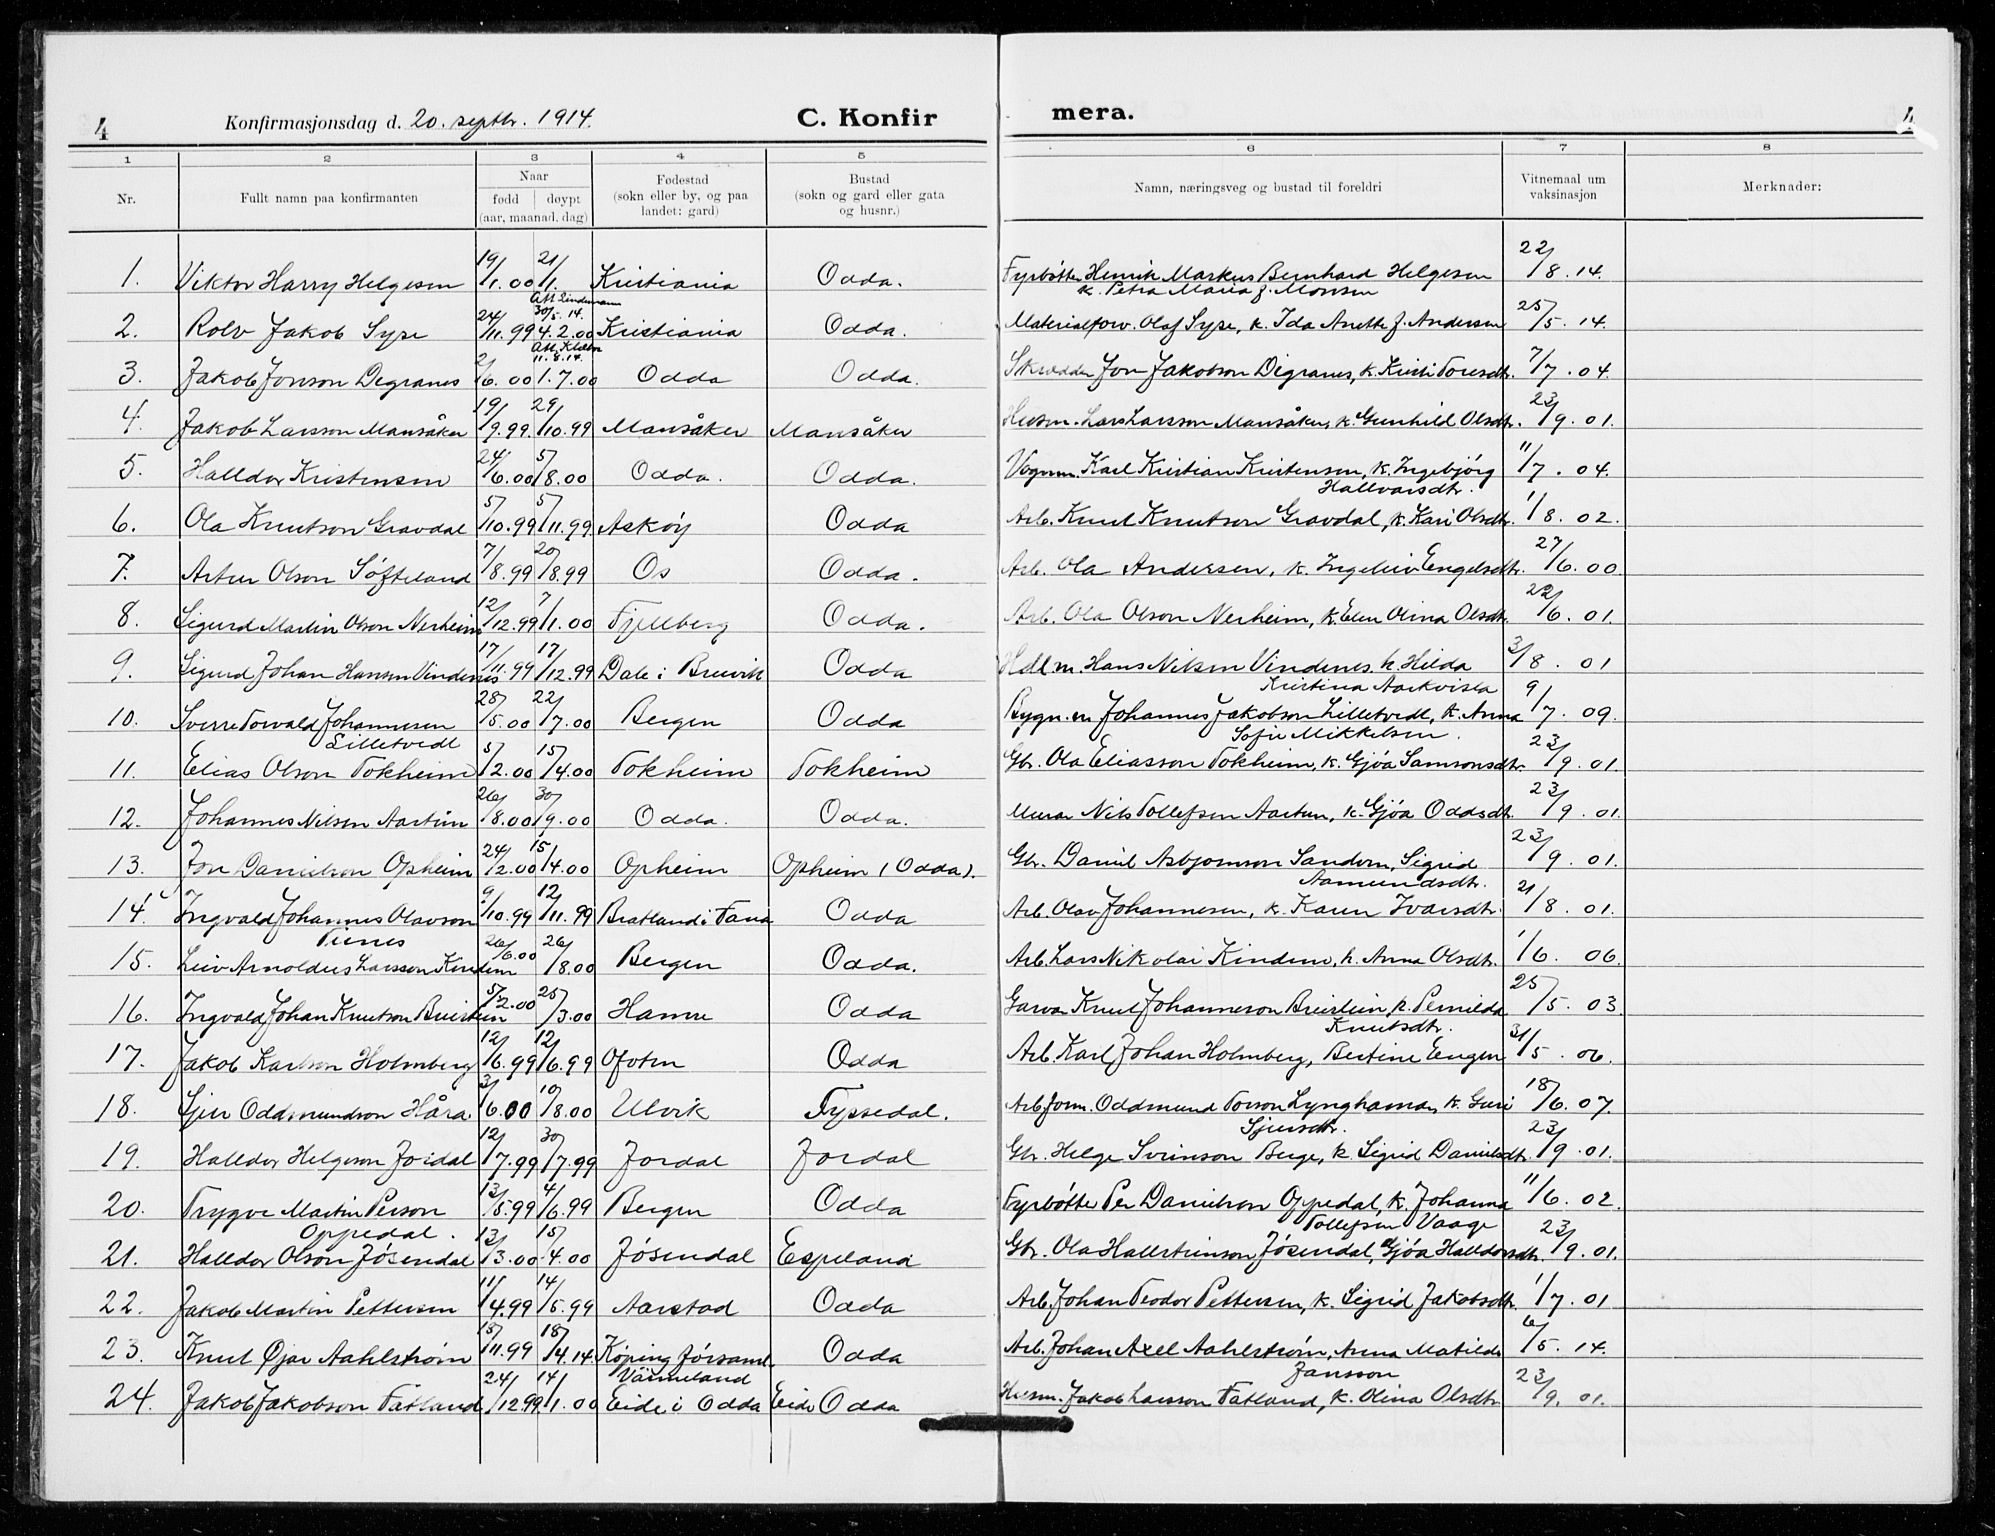 4 Konfirmasjonsdag d. 20. septbr. 1914. C. Konfir mera. 4
1 2 3 4 5 6 7 8
Nr. Fullt namn paa konfirmanten Naar fødd døypt (aar, maanad, dag) Fødestad (sokn eller by, og paa landet: gard) Bustad (sokn og gard eller gata og husnr.) Namn, næringsveg og bustad til foreldri Vitnemaal um vaksinasjon Merknader:
1. Viktor Harry Helgesen 19/1.00 21/1. Kristiania Odda. Fyrbøtte Henrik Markus Bernhard Helgesen 22/8.14.
k. Petra Maria f. Monsen
Att. Lindemann 30/5.14.
2. Rolv Jakob Syse 24/11.99 4.2.00 Kristiania Odda. Materialforv. Olaf Syse, k. Ida Anette f. Andersen 25/5.14.
11.8.14.
3. Jakob Jonson Degranes 2/6.00 1.7.00 Odda Odda. Skrædder Jon Jakobson Digranes, k. Kristi Toresdtr. 7/7.04.
4. Jakob Larsson Mansåker 19/9.99. 29/10.99 Mansåker Mansåker Husm. Lars Larsson Mansåker, k. Gunhild Olsdtr. 23/9.01.
5. Halldor Kristensen 24/6.00 5/8.00 Odda. Odda. Vognm. Karl Kristian Kristensen, k. Ingebjörg 11/7.04.
Hallvarsdtr.
6. Ola Knutson Gravdal 5/10.99 5/11.99 Askøy Odda Arb. Knut Knutson Gravdal, k. Kari Olsdtr. 1/8.02.
7. Artur Olson Søfteland 7/8.99 20/8.99 Os Odda. Arb. Ola Andersen, k. Ingeleiv Engelsdtr. 27/6.00.
8. Sigurd Martin Olson Nerheim 12/12.99 7/1.00 Fjellberg Odda. Arb. Ola Olson Nerheim, k. Elen Olina Olsdtr. 22/6.01.
9. Sigurd Johan Hansen Vindenes 17/11.99 17/12.99 Dale i Bruvik Odda Hdl m. Hans Nilsen Vindenes, k. Hilda 3/8.01
Kristina Aarkvisla
10. Sverre Torvald Johannesen 28/5.00 22/7.00 Bergen Odda Bygn. m Johannes Jakobson Lilletvedt, k. Anna 9/7.09.
Lilletvedt Sofie Mikkelsen.
11. Elias Olson Tokheim 5/2.00 15/4.00 Tokheim Tokheim Gbr. Ola Eliasson Tokheim, k. Gjøa Samsonsdtr. 23/9.01.
12. Johannes Nilsen Aartun 26/8.00 30/9.00 Odda. Odda. Murar Nils Tollefsen Aartun, k. Gjøa Oddsdtr. 23/9.01.
13. Jon Danielson Opheim 24/2.00 15/4.00 Opheim Opheim (Odda). Gbr. Daniel Asbjørnson Sanden, Sigrid 23/9.01.
Aamundsdtr.
14. Ingvald Johannes Olavson 9/10.99 12/11.99 Bratland i Fana Odda Arb. Olav Johannesen, k. Karen Ivarsdtr. 21/8.01.
Tienes
15. Leiv Arnoldus Larsson Kindem 26/6.00 26/8.00 Bergen Odda. Arb. Lars Nikolai Kindem, k. Anna Olsdtr. 1/6.06.
16. Ingvald Johan Knutson Breistein 5/2.00 25/3.00 Hamre Odda Garva Knut Johanneson Breistein, k. Pernilda 25/5.03.
Knutsdtr.
17. Jakob Karlson Holmberg 12/6.99 12/6.99 Ofoten Odda Arb. Karl Johan Holmberg, Bertine Engen 31/5.06.
18. Sjur Oddmundson Håra 3/6.00 19/8.00 Ulvik Tyssedal. Arb.form. Oddmund Torson Lynghamar, k. Guri 18/6.07.
Sjursdtr.
19. Halldor Helgeson Jordal 12/7.99 30/7.99 Jordal Jordal Gbr. Helge Sveinson Berge, k. Sigrid Danielsdtr. 23/9.01.
20. Trygve Martin Person 13/5.99 4/6.99 Bergen Odda Fyrbøtte Per Danielson Oppedal, k. Johanna 11/6.02.
Oppedal. Tollefsen Vaage
21. Halldor Olson Jøsendal 13/3.00 15/4.00 Jøsendal Espeland Gbr. Ola Hallsteinson Jøsendal, Gjøa Halldorsdtr. 23/9.01.
22. Jakob Martin Pettersen 11/4.99 14/5.99 Aarstad Odda Arb. Johan Teodor Pettersen, k. Sigrid Jakobsdtr. 1/7.01
23. Knut Øjar Aahlstrøm 18/11.99 18/4.14. Køping Odda Arb. Johan Axel Aahlstrøm, Anna Matilde 6/5.14.
Värmeland Jansson
24. Jakob Jakobson Fatland 24/12.99. 14/1.00 Eide i Odda Eide Odda Husm. Jakob Larsson Fatland, k. Olina Olsdtr. 23/9.01.